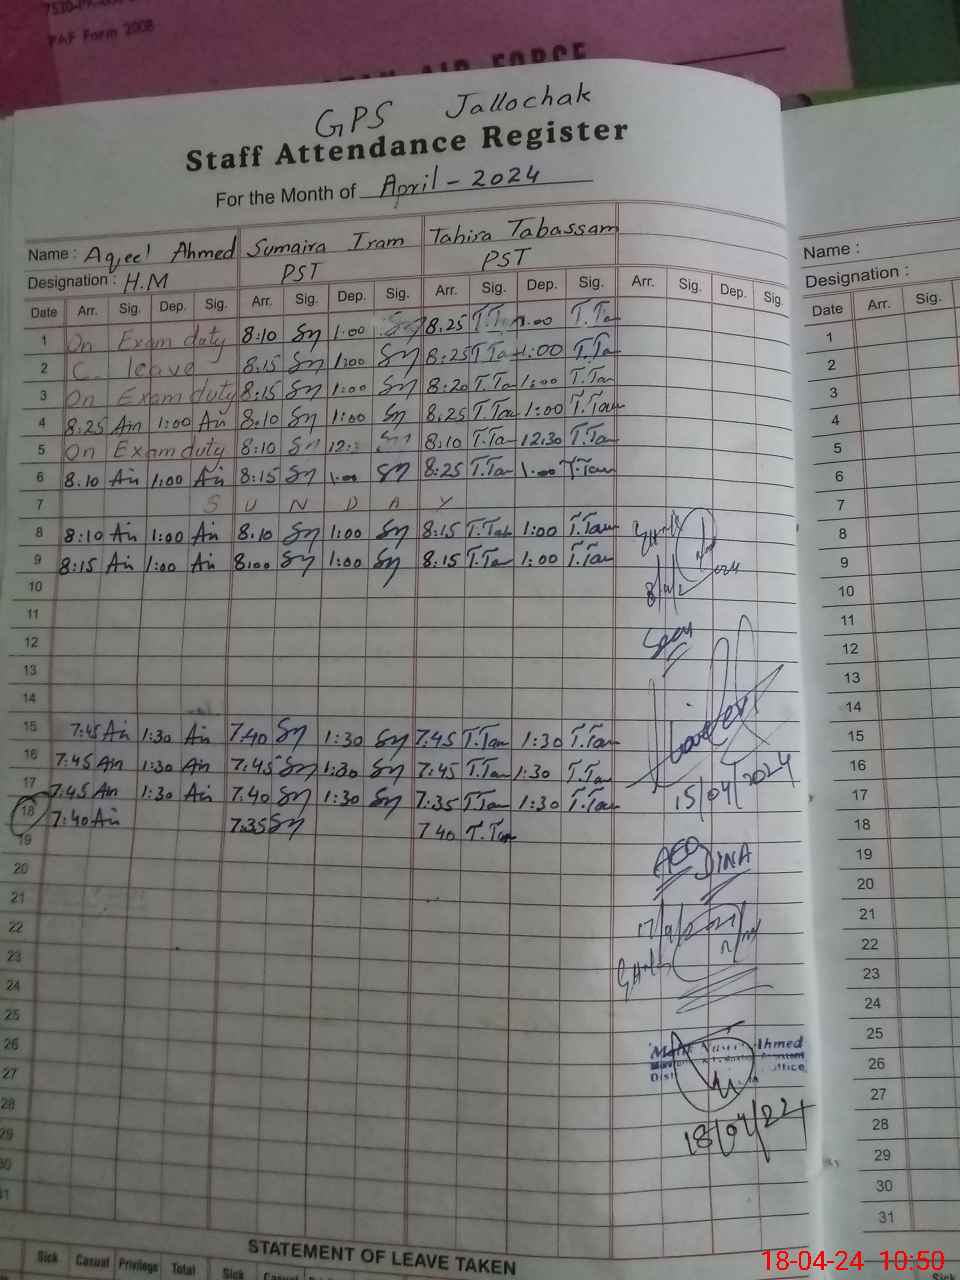 7530-PK-
PAF Form 2008
AIR FORCE
GPS Jallochak
Staff Attendance Register
For the Month of April - 2024
Name : Aqeel Ahmed Sumaira Iram Tahira Tabassam
Designation : H.M PST PST
Date Arr. Sig. Dep. Sig. Arr. Sig. Dep. Sig. Arr. Sig. Dep. Sig. Arr. Sig. Dep. Sig.
1 On Exam duty 8:10 Sy 1:00 Sy 8.25 T.Ta 1:00 T.Ta
2 C. leave 8.15 Sy 1:00 Sy 8:25 T.Ta 1:00 T.Ta
3 On Exam duty 8:15 Sy 1:00 Sy 8:20 T.Ta 1:00 T.Tam
4 8.25 Ain 1:00 Ain 8.10 Sy 1:00 Sy 8.25 T.Tam 1:00 T.Tam
5 On Exam duty 8:10 Sy 12: Sy 8:10 T.Ta 12.30 T.Tam
6 8.10 Ain 1:00 Ain 8:15 Sy 1.00 Sy 8:25 T.Tam 1.00 T.Tam
7 S U N D A Y
8 8:10 Ain 1:00 Ain 8.10 Sy 1:00 Sy 8:15 T.Tab 1:00 T.Tam
9 8:15 Ain 1:00 Ain 8:00 Sy 1:00 Sy 8.15 T.Tam 1:00 T.Tam
10
11
12
13
14
15 7:45 Ain 1:30 Ain 7.40 Sy 1:30 Sy 7.45 T.Tam 1:30 T.Tam
16 7:45 Ain 1:30 Ain 7:45 Sy 1:30 Sy 7:45 T.Tam 1:30 T.Ta
17 7:45 Ain 1:30 Ain 7:40 Sy 1:30 Sy 7:35 T.Tam 1:30 T.Tam
15/04/2024
18 7:40 Ain 7.35 Sy 7.40 T.Tam
19
AEO DINA
20
21
22
23
24
25
26
Ahmed
27
Dist Office
28
18/04/24
29
30
31
STATEMENT OF LEAVE TAKEN
Sick Casual Privilege Total Sick Casual
Name :
Designation :
Date Arr. Sig.
1
2
3
4
5
6
7
8
9
10
11
12
13
14
15
16
17
18
19
20
21
22
23
24
25
26
27
28
29
30
31
Sick
18-04-24 10:50